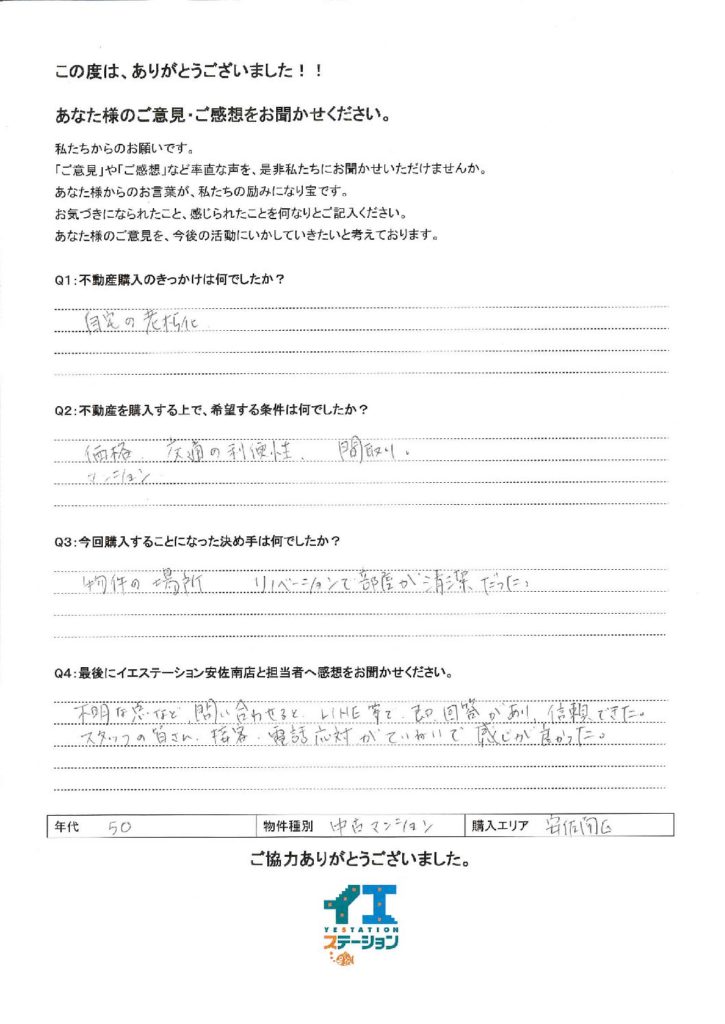 この度は、ありがとうございました！！
あなた様のご意見・ご感想をお聞かせください。
私たちからのお願いです。
「ご意見」や「ご感想」など率直な声を、是非私たちにお聞かせいただけませんか。
あなた様からのお言葉が、私たちの励みになり宝です。
お気づきになられたこと、感じられたことを何なりとご記入ください。
あなた様のご意見を、今後の活動にいかしていきたいと考えております。
Q1：不動産購入のきっかけは何でしたか？
自宅の老朽化
Q2：不動産を購入する上で、希望する条件は何でしたか？
価格、交通の利便性、間取り。
マンション
Q3：今回購入することになった決め手は何でしたか？
物件の場所 リノベーションで部屋が清潔だった。
Q4：最後にイエステーション安佐南店と担当者へ感想をお聞かせください。
不明な点など、問い合わせると、LINE等で、即、回答があり、信頼できた。
スタッフの皆さん、接客・電話応対がていねいで感じが良かった。
年代 50 物件種別 中古マンション 購入エリア 安佐南区
ご協力ありがとうございました。
イエ
YESTATION
ステーション